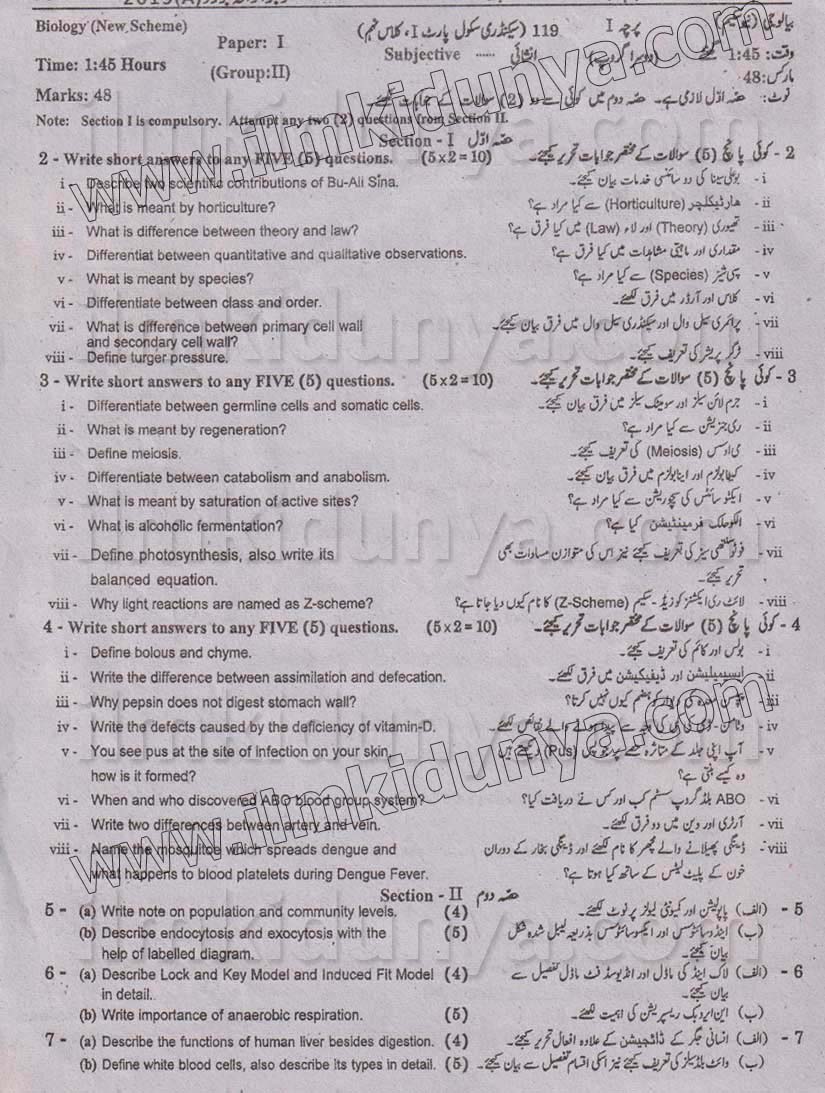 Biology (New Scheme) Paper: I 119 (سیکنڈری سکول پارٹ I، کلاس نہم) پرچہ I
Time: 1:45 Hours (Group:II) Subjective ...... انشائیہ وقت: 1:45 گھنٹے
Marks: 48 مارکس: 48
نوٹ: حصہ اوّل لازمی ہے۔ حصہ دوم میں کوئی سے دو (2) سوالات کے جوابات لکھئے۔
Note: Section I is compulsory. Attempt any two (2) questions from Section II.
Section - I حصہ اوّل
2 - Write short answers to any FIVE (5) questions. (5 x 2 = 10) 2 - کوئی پانچ (5) سوالات کے مختصر جوابات تحریر کیجئے۔
i - Describe two scientific contributions of Bu-Ali Sina. i - بوعلی سینا کی دو سائنسی خدمات بیان کیجئے۔
ii - What is meant by horticulture? ii - ہارٹیکلچر (Horticulture) سے کیا مراد ہے؟
iii - What is difference between theory and law? iii - تھیوری (Theory) اور لاء (Law) میں کیا فرق ہے؟
iv - Differentiat between quantitative and qualitative observations. iv - مقداری اور ماہیتی مشاہدات میں کیا فرق ہے؟
v - What is meant by species? v - سپی شیز (Species) سے کیا مراد ہے؟
vi - Differentiate between class and order. vi - کلاس اور آرڈر میں فرق لکھئے۔
vii - What is difference between primary cell wall vii - پرائمری سیل وال اور سیکنڈری سیل وال میں فرق بیان کیجئے۔
and secondary cell wall?
viii - Define turger pressure. viii - ٹرگر پریشر کی تعریف کیجئے۔
3 - Write short answers to any FIVE (5) questions. (5 x 2 = 10) 3 - کوئی پانچ (5) سوالات کے مختصر جوابات تحریر کیجئے۔
i - Differentiate between germline cells and somatic cells. i - جرم لائن سیلز اور سومیٹک سیلز میں فرق بیان کیجئے۔
ii - What is meant by regeneration? ii - ری جنریشن سے کیا مراد ہے؟
iii - Define meiosis. iii - می اوسس (Meiosis) کی تعریف کیجئے۔
iv - Differentiate between catabolism and anabolism. iv - کیٹابولزم اور اینابولزم میں فرق بیان کیجئے۔
v - What is meant by saturation of active sites? v - ایکٹو سائٹس کی سچوریشن سے کیا مراد ہے؟
vi - What is alcoholic fermentation? vi - الکوحلک فرمینٹیشن کیا ہے؟
vii - Define photosynthesis, also write its vii - فوٹو سنتھی سیز کی تعریف کیجئے نیز اس کی متوازن مساوات بھی
balanced equation. تحریر کیجئے۔
viii - Why light reactions are named as Z-scheme? viii - لائٹ ری ایکشنز کو زیڈ-سکیم (Z-Scheme) کا نام کیوں دیا جاتا ہے؟
4 - Write short answers to any FIVE (5) questions. (5 x 2 = 10) 4 - کوئی پانچ (5) سوالات کے مختصر جوابات تحریر کیجئے۔
i - Define bolous and chyme. i - بولس اور کائم کی تعریف کیجئے۔
ii - Write the difference between assimilation and defecation. ii - ایسیمیلیشن اور ڈیفیکیشن میں فرق لکھئے۔
iii - Why pepsin does not digest stomach wall? iii - کیوں نہیں کرتا؟
iv - Write the defects caused by the deficiency of vitamin-D. iv - والے نقائص لکھئے۔
v - You see pus at the site of infection on your skin, v - آپ اپنی جلد کے متاثرہ (Pus) دیکھتے ہیں
how is it formed? وہ کیسے بنتی ہے؟
vi - When and who discovered ABO blood group system? vi - ABO بلڈ گروپ سسٹم کب اور کس نے دریافت کیا؟
vii - Write two differences between artery and vein. vii - آرٹری اور وین میں دو فرق لکھئے۔
viii - Name the mosquitoe which spreads dengue and viii - ڈینگی پھیلانے والے مچھر کا نام لکھئے اور ڈینگی بخار کے دوران
what happens to blood platelets during Dengue Fever. خون کے پلیٹ لیٹس کے ساتھ کیا ہوتا ہے؟
Section - II حصہ دوم
5 - (a) Write note on population and community levels. (4) 5 - (الف) پاپولیشن اور کمیونٹی لیولز پر نوٹ لکھئے۔
(b) Describe endocytosis and exocytosis with the (5) (ب) اینڈوسائٹوسس اور ایکسوسائٹوسس بذریعہ لیبل شدہ شکل
help of labelled diagram. بیان کیجئے۔
6 - (a) Describe Lock and Key Model and Induced Fit Model (4) 6 - (الف) لاک اینڈ کی ماڈل اور انڈیوسڈ فٹ ماڈل تفصیل سے
in detail.. بیان کیجئے۔
(b) Write importance of anaerobic respiration. (5) (ب) این ایروبک ریسپریشن کی اہمیت لکھئے۔
7 - (a) Describe the functions of human liver besides digestion. (4) 7 - (الف) انسانی جگر کے ڈائجیشن کے علاوہ افعال تحریر کیجئے۔
(b) Define white blood cells, also describe its types in detail. (5) (ب) وائٹ بلڈ سیلز کی تعریف کیجئے نیز اسکی اقسام تفصیل سے بیان کیجئے۔
www.ilmkidunya.com
www.ilmkidunya.com
ilmkidunya.com
ilmkidunya.com
ilmkidunya.com
ilmkidunya.com
ilmkidunya.com